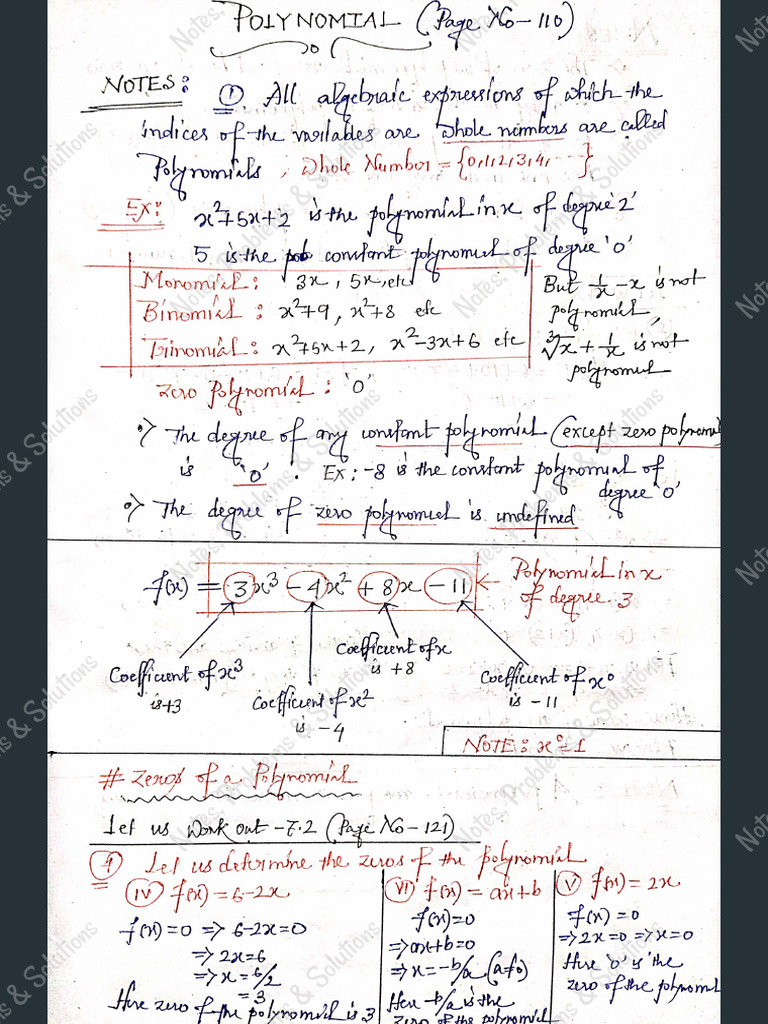 POLYNOMIAL (Page No-110)
NOTES: ① All algebraic expressions of which the
indices of the variables are whole numbers are called
Polynomials, Whole Number = {0,1,2,3,4, ---}
Ex: x²+5x+2 is the polynomial in x of degree '2'
5 is the constant polynomial of degree '0'
Monomial: 3x, 5x, etc
Binomial: x²+9, x²+8 etc
Trinomial: x²+5x+2, x²-3x+6 etc
But 1/x - x is not
polynomial,
∛x + 1/x is not
polynomial
Zero polynomial: '0'
•) The degree of any constant polynomial (except zero polynomi
is '0'. Ex: -8 is the constant polynomial of
degree '0'
•) The degree of zero polynomial is undefined
f(x) = 3x³ - 4x² + 8x - 11 ← Polynomial in x
of degree 3
Coefficient of x³
is +3
Coefficient of x²
is -4
Coefficient of x
is +8
Coefficient of x⁰
is -11
NOTE: x⁰=1
# Zeros of a Polynomial
Let us work out -7.2 (Page No-121)
④ Let us determine the zeros of the polynomial
(iv) f(x) = 6-2x
f(x)=0 => 6-2x=0
=> 2x=6
=> x=6/2
=3
Here zero of the polynomial is 3
(vi) f(x) = ax+b
f(x)=0
=> ax+b=0
=> x=-b/a (a≠0)
Here -b/a is the
zero of the polynomial
(v) f(x) = 2x
f(x) = 0
=> 2x=0 => x=0
Here '0' is the
zero of the polynomi
Notes, Problems & Solutions